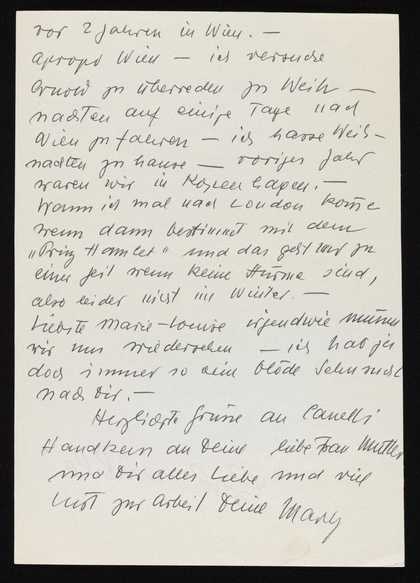 vor 2 Jahren in Wien. —
Apropo Wien — ich versuche
Arnold zu überreden zu Weih-
nachten auf einige Tage nach
Wien zu fahren — ich hasse Weih-
nachten zu hause — voriges Jahr
waren wir in Kopenhagen. —
Wann ich mal nach London komme
wenn dann bestimmt mit dem
"Prinz Hamlet" und das geht nur zu
einer Zeit wenn keine Stürme sind,
also leider nicht im Winter. —
Liebste Marie-Louise irgendwie müssen
wir uns wiedersehen — ich hab ja
doch immer so eine blöde Sehnsucht
nach Dir. —
Herzlichste Grüsse an Canetti
Handkuss an Deine liebe Frau Mutter
und Dir alles Liebe und viel
Lust zur Arbeit Deine Mary